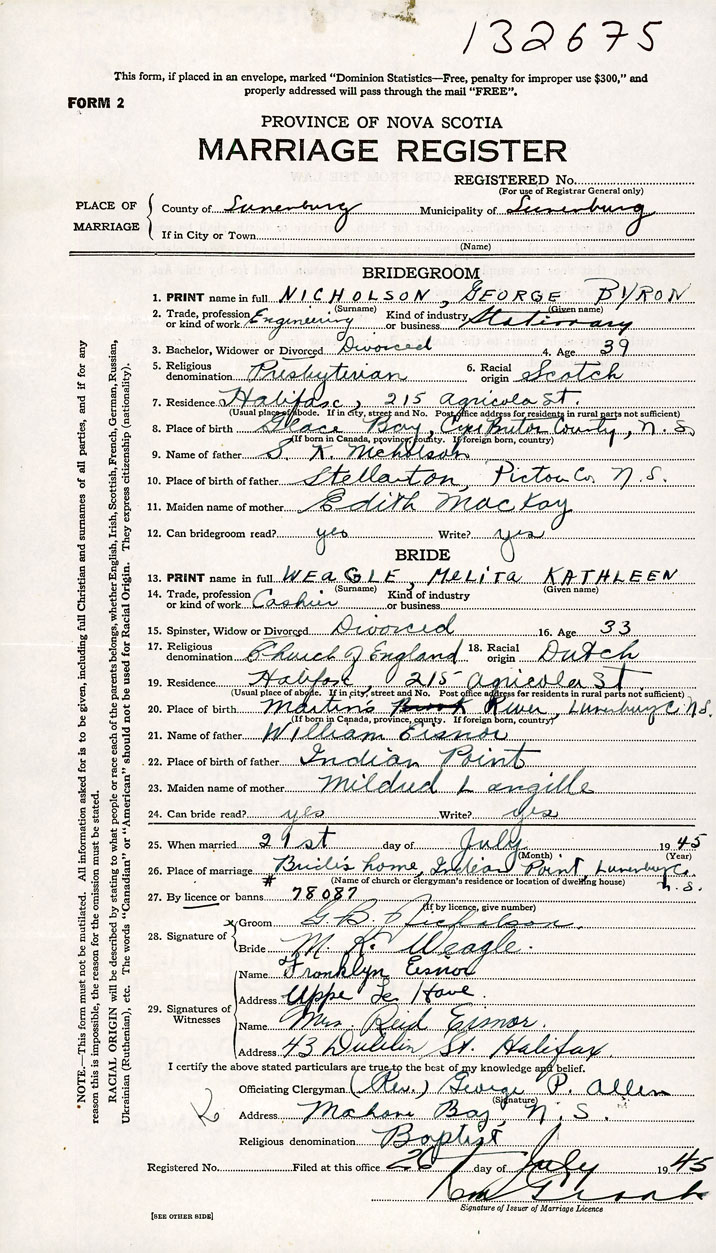 132675
This form, if placed in an envelope, marked "Dominion Statistics—Free, penalty for improper use $300," and
properly addressed will pass through the mail "FREE".
FORM 2
PROVINCE OF NOVA SCOTIA
MARRIAGE REGISTER
REGISTERED No.
(For use of Registrar General only)
PLACE OF MARRIAGE
County of Lunenburg Municipality of Lunenburg
If in City or Town
(Name)
BRIDEGROOM
1. PRINT name in full NICHOLSON, GEORGE BYRON
(Surname) (Given name)
2. Trade, profession or kind of work Engineering Kind of industry or business Stationary
3. Bachelor, Widower or Divorced Divorced 4. Age 39
5. Religious denomination Presbyterian 6. Racial origin Scotch
7. Residence Halifax, 215 Agricola St.
(Usual place of abode. If in city, street and No. Post office address for residents in rural parts not sufficient)
8. Place of birth Glace Bay, Cape Breton County, N.S.
(If born in Canada, province, county. If foreign born, country)
9. Name of father S. K. Nicholson
10. Place of birth of father Stellarton, Pictou Co. N.S.
11. Maiden name of mother Edith MacKay
12. Can bridegroom read? yes Write? yes
BRIDE
13. PRINT name in full WEAGLE, MELITA KATHLEEN
(Surname) (Given name)
14. Trade, profession or kind of work Cashier Kind of industry or business
15. Spinster, Widow or Divorced Divorced 16. Age 33
17. Religious denomination Church of England 18. Racial origin Dutch
19. Residence Halifax, 215 Agricola St
(Usual place of abode. If in city, street and No. Post office address for residents in rural parts not sufficient)
20. Place of birth Martins Brook River, Lunenburg Co. N.S.
(If born in Canada, province, county. If foreign born, country)
21. Name of father William Eisnor
22. Place of birth of father Indian Point
23. Maiden name of mother Mildred Langille
24. Can bride read? yes Write? yes
25. When married 21st day of July 1945
(Month) (Year)
26. Place of marriage Bride's home, Indian Point, Lunenburg Co. N.S.
(Name of church or clergyman's residence or location of dwelling house)
27. By licence or banns # 78087
(If by licence, give number)
28. Signature of
x Groom G. B. Nicholson.
Bride M. K. Weagle.
29. Signatures of Witnesses
Name Franklyn Eisnor
Address Uppe Le Have.
Name Mrs. Reid Eisnor.
Address 43 Dublin St. Halifax.
I certify the above stated particulars are true to the best of my knowledge and belief.
Officiating Clergyman (Rev.) George P. Allen
(Signature)
Address Mahone Bay, N.S.
Religious denomination Baptist
Registered No. Filed at this office 26 day of July 1945
Signature of Issuer of Marriage Licence
[SEE OTHER SIDE]
NOTE.—This form must not be mutilated. All information asked for is to be given, including full Christian and surnames of all parties, and if for any
reason this is impossible, the reason for the omission must be stated.
RACIAL ORIGIN will be described by stating to what people or race each of the parents belongs, whether English, Irish, Scottish, French, German, Russian,
Ukrainian (Ruthenian), etc. The words "Canadian" or "American" should not be used for Racial Origin. They express citizenship (nationality).